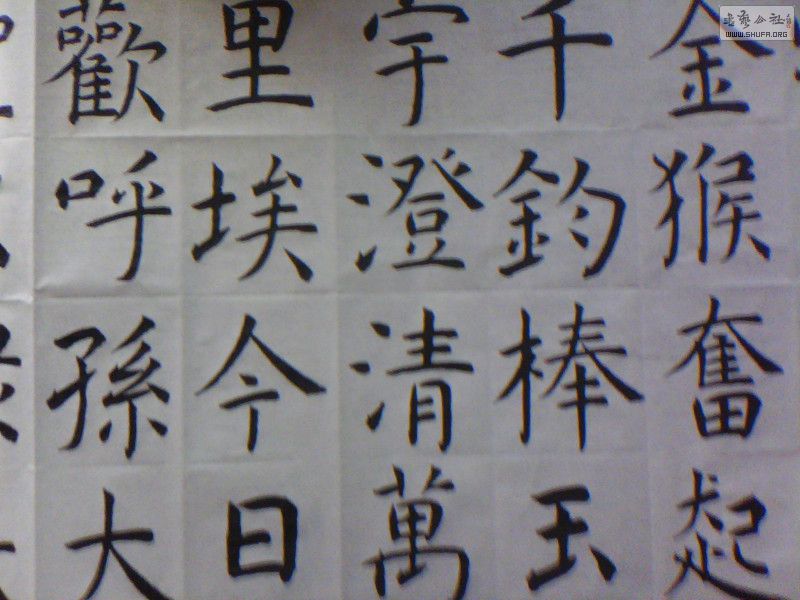 金猴奮起
千鈞棒玉
宇澄清萬
里埃今日
歡呼孫大
WWW.SHUFA.ORG